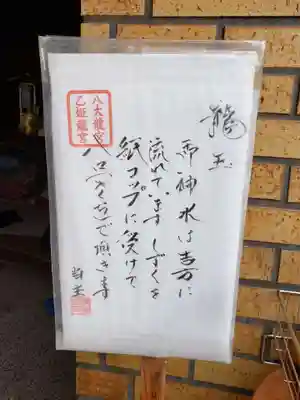 龍玉
雨神水は吉方に
流れています しずくを
紙コップに受けて
八口(くち)で頂きます
八大龍宮
乙姫龍宮